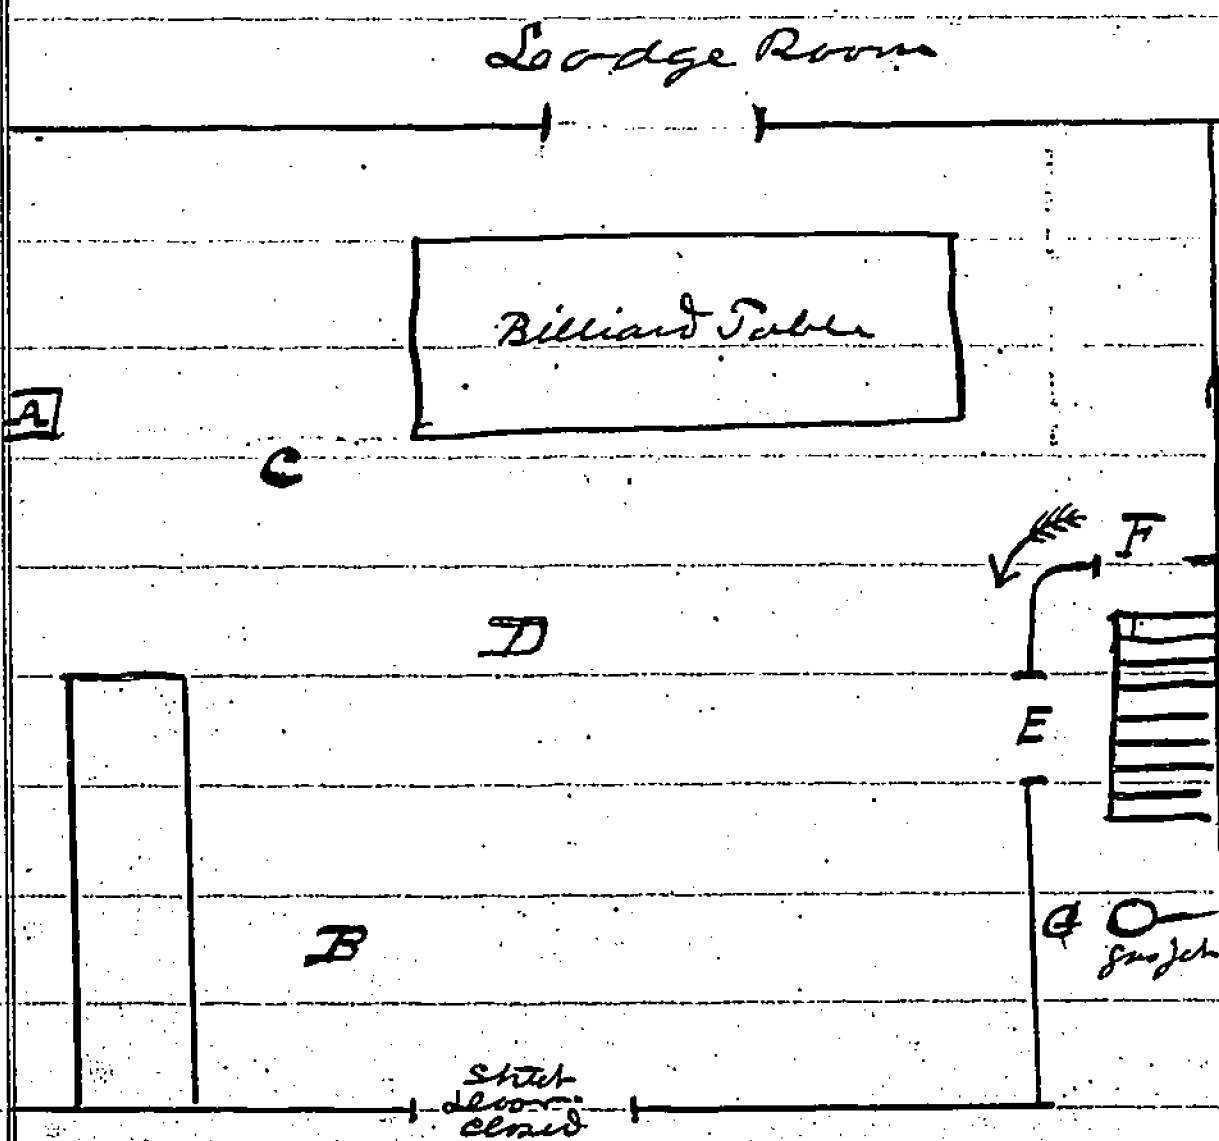 Lodge Room
Billiard Table
A
C
F
D
E
B
G
gas jet
Door
closed